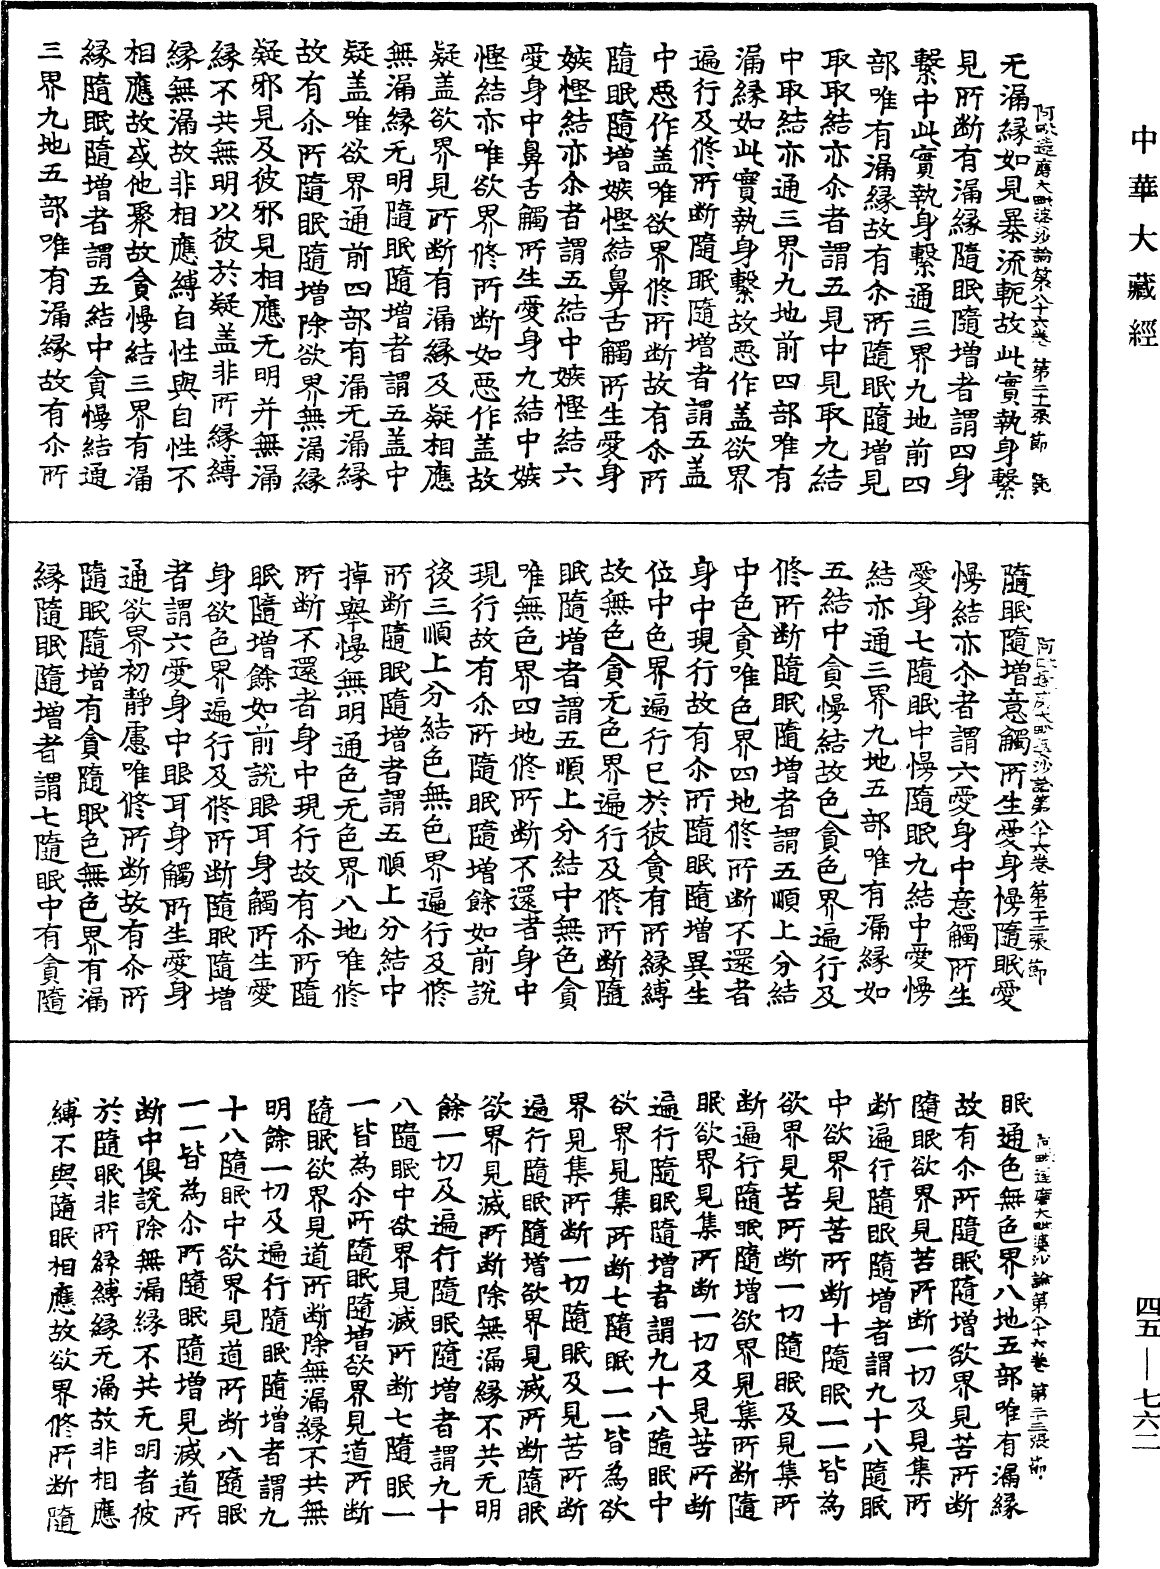 中華大藏經
阿毗達磨大毗婆沙論第八十六卷 第二十一張 節 號
无漏緣如見暴流軛故此實執身繫
見所断有漏緣隨眠隨增者謂四身
繫中此實執身繫通三界九地前四
部唯有漏緣故有尒所隨眠隨增見
取取結亦尒者謂五見中見取九結
中取結亦通三界九地前四部唯有
漏緣如此實執身繫故惡作盖欲界
遍行及修所断隨眠隨增者謂五盖
中惡作盖唯欲界修所断故有尒所
隨眠隨增嫉慳結鼻舌觸所生愛身
嫉慳結亦尒者謂五結中嫉慳結六
愛身中鼻舌觸所生愛身九結中嫉
慳結亦唯欲界修所断如惡作盖故
疑盖欲界見所断有漏緣及疑相應
無漏緣无明隨眠隨增者謂五盖中
疑盖唯欲界通前四部有漏无漏緣
故有尒所隨眠隨增除欲界無漏緣
疑邪見及彼邪見相應无明并無漏
緣不共無明以彼於疑盖非所緣縛
緣無漏故非相應縛自性與自性不
相應故或他聚故貪慢結三界有漏
緣隨眠隨增者謂五結中貪慢結通
三界九地五部唯有漏緣故有尒所
阿毗達磨大毗婆沙論第八十六卷 第二十二張 節
隨眠隨增意觸所生愛身慢隨眠愛
慢結亦尒者謂六愛身中意觸所生
愛身七隨眠中慢隨眠九結中愛慢
結亦通三界九地五部唯有漏緣如
五結中貪慢結故色貪色界遍行及
修所断隨眠隨增者謂五順上分結
中色貪唯色界四地修所断不還者
身中現行故有尒所隨眠隨增異生
位中色界遍行已於彼貪有所緣縛
故無色貪无色界遍行及修所断隨
眠隨增者謂五順上分結中無色貪
唯無色界四地修所断不還者身中
現行故有尒所隨眠隨增餘如前說
後三順上分結色無色界遍行及修
所断隨眠隨增者謂五順上分結中
掉舉慢無明通色无色界八地唯修
所断不還者身中現行故有尒所隨
眠隨增餘如前說眼耳身觸所生愛
身欲色界遍行及修所断隨眠隨增
者謂六愛身中眼耳身觸所生愛身
通欲界初靜慮唯修所断故有尒所
隨眠隨增有貪隨眠色無色界有漏
緣隨眠隨增者謂七隨眠中有貪隨
阿毗達磨大毗婆沙論第八十六卷 第二十三張 節
眠通色無色界八地五部唯有漏緣
故有尒所隨眠隨增欲界見苦所断
隨眠欲界見苦所断一切及見集所
断遍行隨眠隨增者謂九十八隨眠
中欲界見苦所断十隨眠一一皆為
欲界見苦所断一切隨眠及見集所
断遍行隨眠隨增欲界見集所断隨
眠欲界見集所断一切及見苦所断
遍行隨眠隨增者謂九十八隨眠中
欲界見集所断七隨眠一一皆為欲
界見集所断一切隨眠及見苦所断
遍行隨眠隨增欲界見滅所断隨眠
欲界見滅所断除無漏緣不共无明
餘一切及遍行隨眠隨增者謂九十
八隨眠中欲界見滅所断七隨眠一
一皆為尒所隨眠隨增欲界見道所断
隨眠欲界見道所断除無漏緣不共無
明餘一切及遍行隨眠隨增者謂九
十八隨眠中欲界見道所断八隨眠
一一皆為尒所隨眠隨增見滅道所
断中俱說除無漏緣不共无明者彼
於隨眠非所緣縛緣无漏故非相應
縛不與隨眠相應故欲界修所断隨
四五—七六二